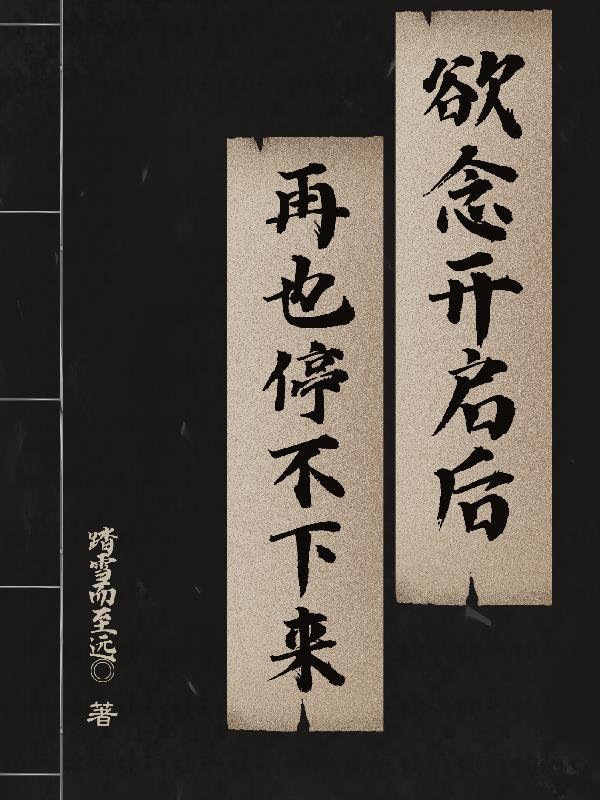 欲念开启后
再也停不下来
踏雪而至远◎ 著